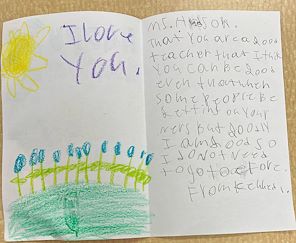 I love
You.
Ms.
That You are a good
teacher that I think
You can be good
even thow when
some People be
getting on Your
ners But goodly
I am good so
I do not need
to go to
From